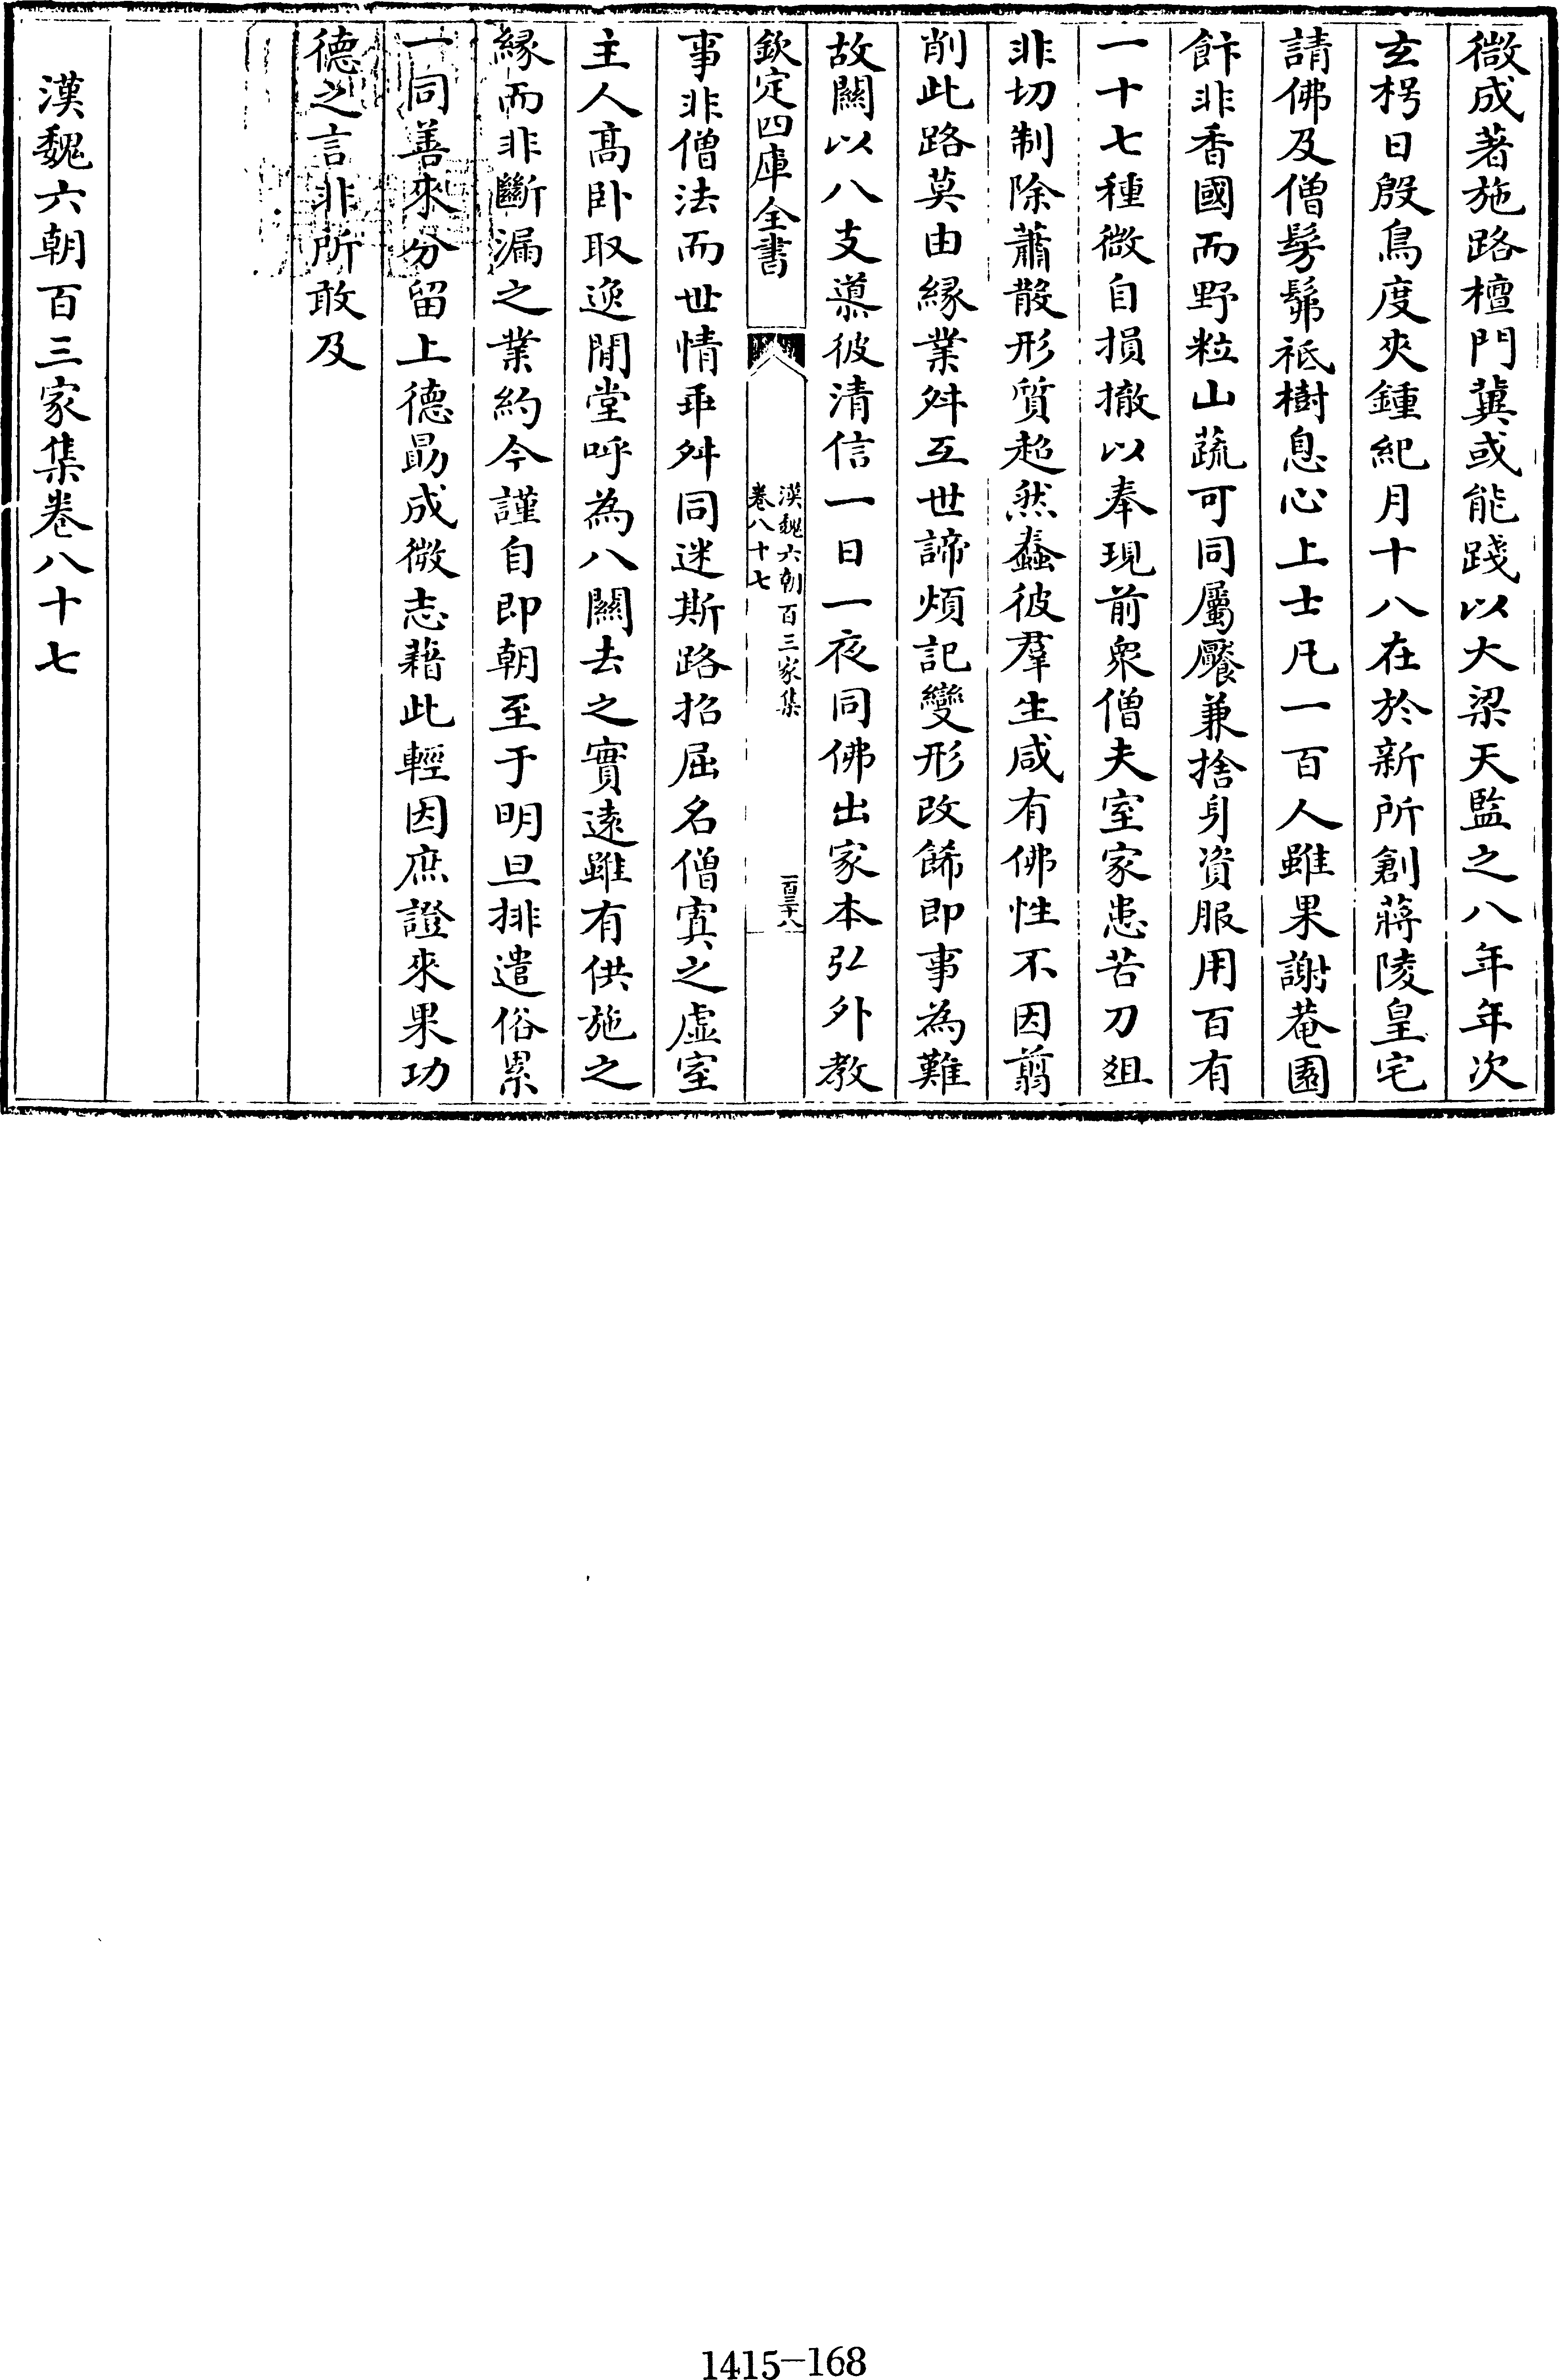 微成著施路檀門冀或能踐以大梁天監之八年年次
玄枵日殷鳥度夾鍾紀月十八在於新所創蔣陵皇宅
請佛及僧髣髴祗樹息心上士凡一百人雖果謝菴園
飰非香國而野粒山蔬可同屬饜兼捨身資服用百有
一十七種微自損撤以奉現前衆僧夫室家患苦刀俎
非切制除蕭散形質超然蠢彼羣生咸有佛性不因翦
削此路莫由緣業舛互世諦煩記變形改飾即事為難
故闗以八支導彼清信一日一夜同佛出家本弘外教
欽定四庫全書
漢魏六朝百三家集
卷八十七
一百三十八
事非僧法而世情乖舛同迷斯路招屈名僧寘之虛室
主人髙卧取逸閒堂呼為八闗去之實逺雖有供施之
緣而非斷漏之業約今謹自即朝至于明旦排遣俗累
一同善來分留上德勗成微志藉此輕因庶證來果功
德之言非所敢及
漢魏六朝百三家集卷八十七
1415-168